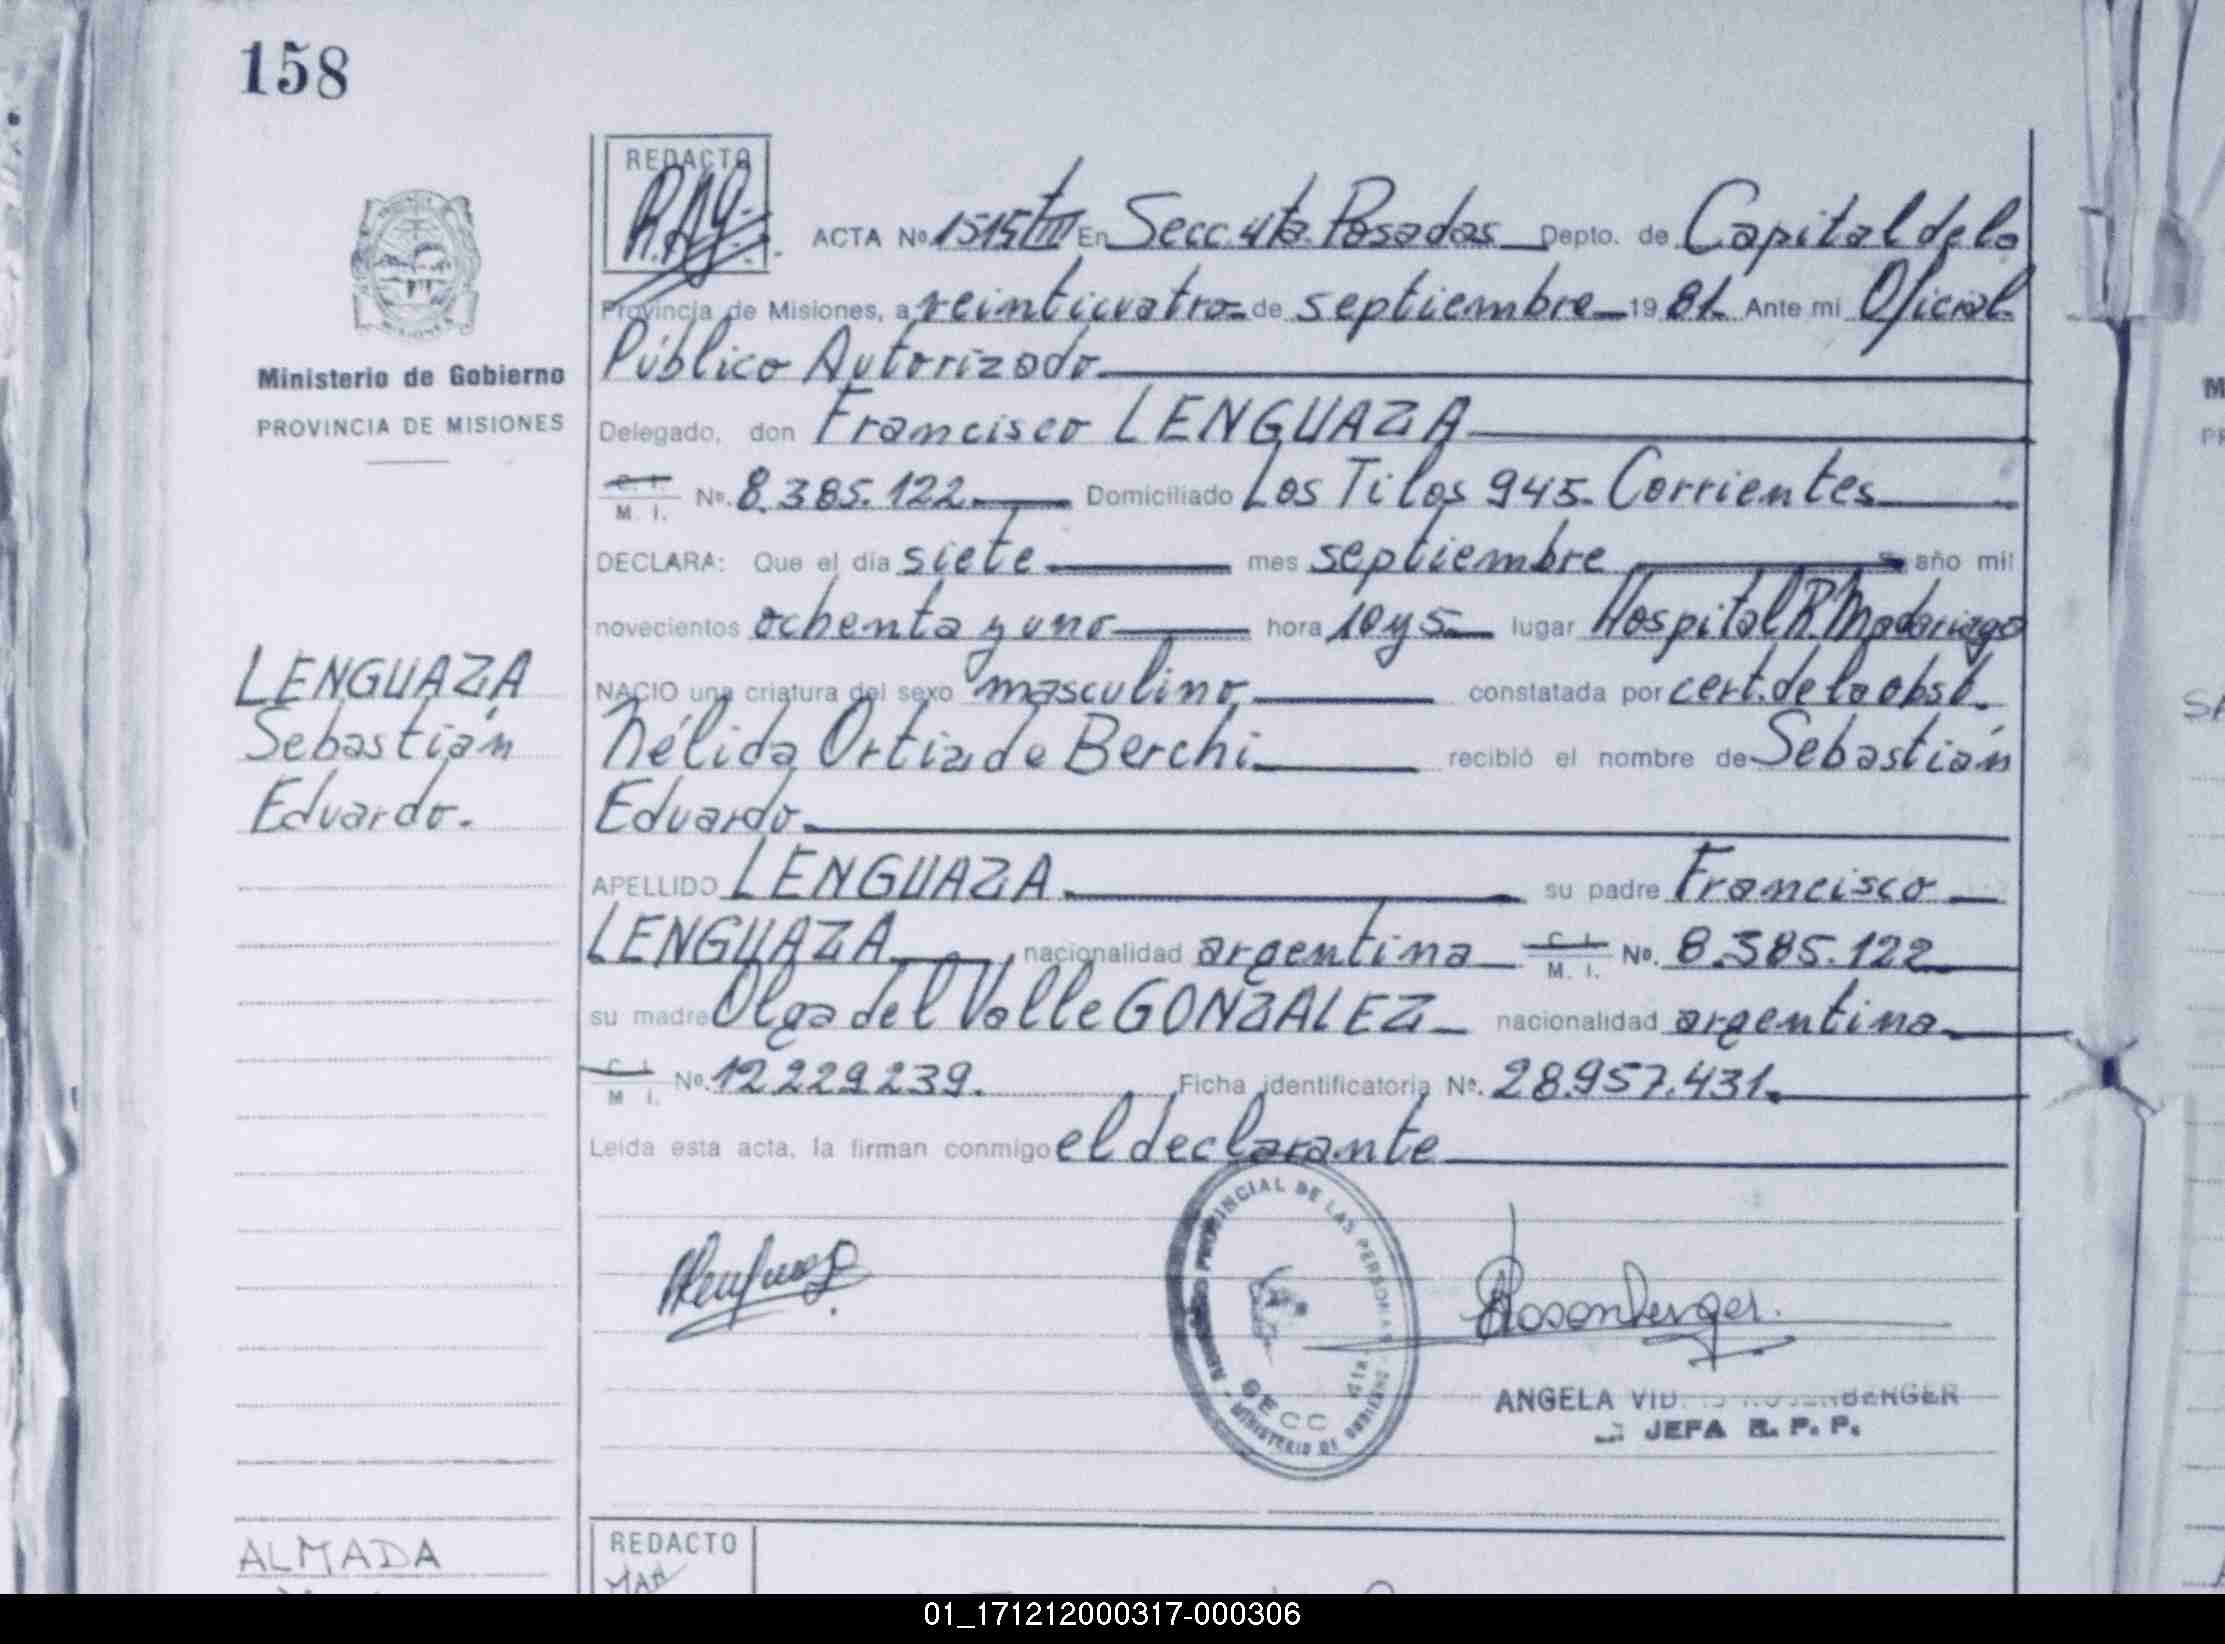 158
REDACTO
ACTA Nº 1515 tº III En Secc. 4ta. Posadas Depto. de Capital de la
Provincia de Misiones, a veinticuatro de septiembre 1981. Ante mi Oficial
Público Autorizado
Ministerio de Gobierno
PROVINCIA DE MISIONES
Delegado, don Francisco LENGUAZA
C. I. M. I. Nº. 8.385.122 Domiciliado Los Tilos 945. Corrientes
DECLARA: Que el día siete mes septiembre año mil
novecientos ochenta y uno hora 10 y 5 lugar Hospital R. Madariaga
LENGUAZA
Sebastián
Eduardo.
NACIO una criatura del sexo masculino constatada por cert. de la obst.
Nélida Ortiz de Berchi recibió el nombre de Sebastián
Eduardo
APELLIDO LENGUAZA su padre Francisco
LENGUAZA, nacionalidad argentina C. I. M. I. No. 8.385.122
su madre Olga del Valle GONZALEZ nacionalidad argentina
C. I. M I. Nº. 12.229.239. Ficha identificatoria Nº. 28.957.431.
Leída esta acta, la firman conmigo el declarante
PROVINCIAL DE LAS PERSONAS
MINISTERIO DE GOBIERNO
Rosenberger.
ANGELA ROSENBERGER
JEFA R. P. P.
ALMADA
REDACTO
MAH
01_171212000317-000306